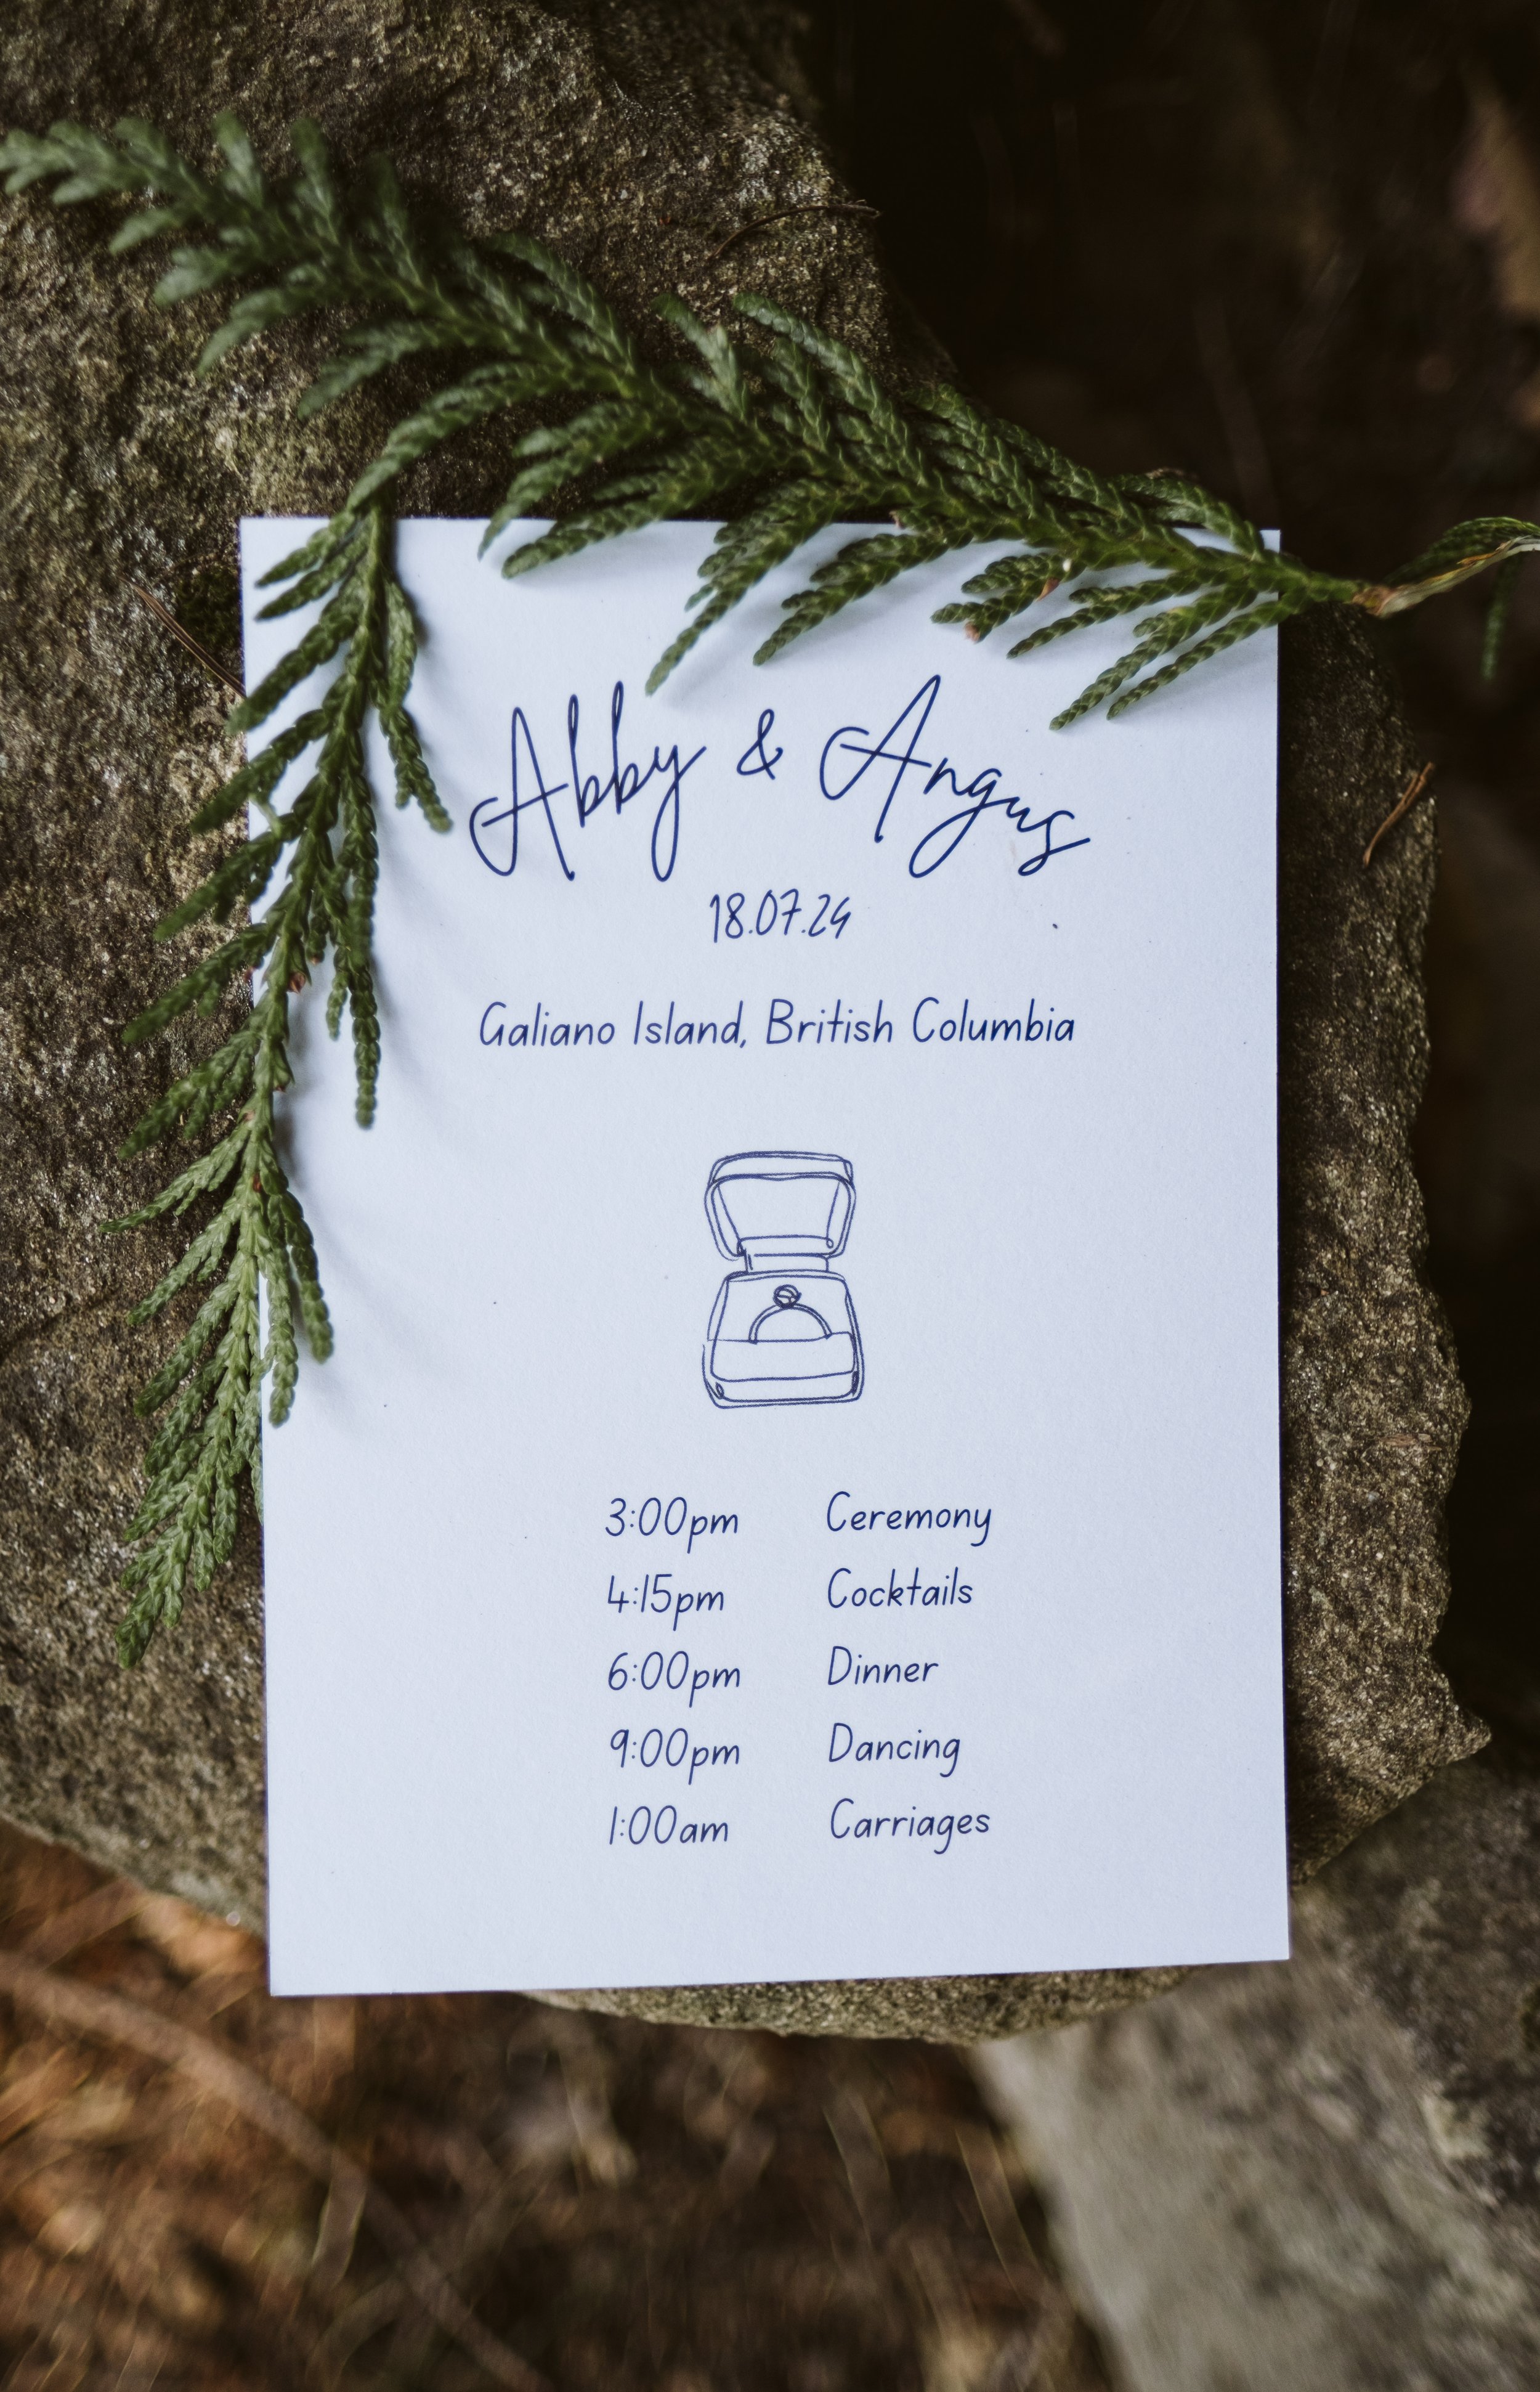 Abby & Angus
18.07.24
Galiano Island, British Columbia
3:00pm Ceremony
4:15pm Cocktails
6:00pm Dinner
9:00pm Dancing
1:00am Carriages